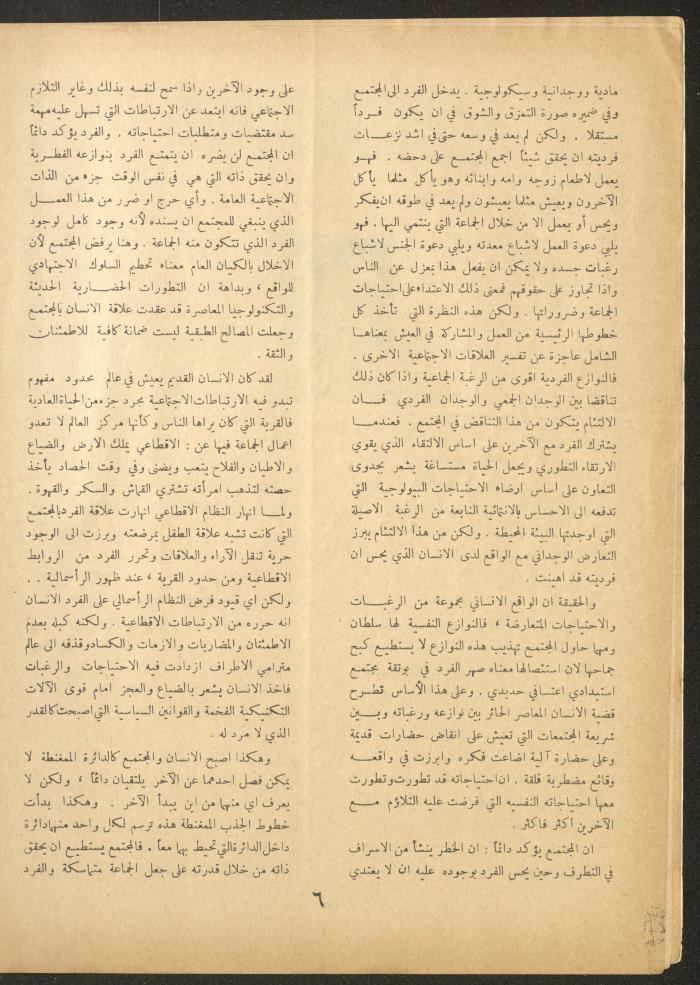 مادية ووجدانية وسيكولوجية . يدخل الفرد الى المجتمع
وفي ضميره صورة التمزق والشوق في ان يكون فرداً
مستقلا . ولكن لم يعد في وسعه حتى في اشد نزعات
فرديته ان يحقق شيئاً اجمع المجتمع على دحضه . فهو
يعمل لاطعام زوجه وامه وابنائه وهو يأكل مثلما يأكل
الآخرون ويعيش مثلما يعيشون ولم يعد في طوقه ان يفكر
ويحس أو يعمل الا من خلال الجماعة التي ينتمي اليها . فهو
يلبي دعوة العمل لاشباع معدته ويلبي دعوة الجنس لاشباع
رغبات جسده ولا يمكن ان يفعل هذا بمعزل عن الناس
واذا تجاوز على حقوقهم فمعنى ذلك الاعتداء على احتياجات
الجماعة وضروراتها . ولكن هذه النظرة التي تأخذ كل
خطوطها الرئيسية من العمل والمشاركة في العيش بمعناها
الشامل عاجزة عن تفسير العلاقات الاجتماعية الاخرى .
فالنوازع الفردية اقوى من الرغبة الجماعية واذا كان ذلك
تناقضا بين الوجدان الجمعي والوجدان الفردي فان
الالتئام يتكون من هذا التناقض في المجتمع . فعندما
يشترك الفرد مع الآخرين على اساس الالتقاء الذي يقوي
الارتقاء التطوري ويجعل الحياة مستساغة يشعر بجدوى
التعاون على اساس ارضاء الاحتياجات البيولوجية التي
تدفعه الى الاحساس بالانتمائية النابعة من الرغبة الاصيلة
التي اوجدتها البيئة المحيطة . ولكن من هذا الالتئام يبرز
التعارض الوجداني مع الواقع لدى الانسان الذي يحس ان
فرديته قد اهينت .
والحقيقة ان الواقع الانساني مجموعة من الرغبات
والاحتياجات المتعارضة ، فالنوازع النفسية لها سلطان
ومهما حاول المجتمع تهذيب هذه النوازع لا يستطيع كبح
جماحها لان استئصالها معناه صهر الفرد في بوتقة مجتمع
استبدادي اعتسافي حديدي . وعلى هذا الأساس تطرح
قضية الانسان المعاصر الحائر بين نوازعه ورغباته وبين
شريعة المجتمعات التي تعيش على انقاض حضارات قديمة
وعلى حضارة آلية اضاعت فكره وابرزت في واقعه
وقائع مضطربة قلقة . ان احتياجاته قد تطورت وتطورت
معها احتياجاته النفسيه التي فرضت عليه التلاؤم مع
الآخرين اكثر فاكثر .
ان المجتمع يؤكد دائماً : ان الخطر ينشأ من الاسراف
في التطرف وحين يحس الفرد بوجوده عليه ان لا يعتدي
على وجود الآخرين واذا سمح لنفسه بذلك وغاير التلازم
الاجتماعي فانه ابتعد عن الارتباطات التي تسهل عليه مهمة
سد مقتضيات ومتطلبات احتياجاته . والفرد يؤكد دائماً
ان المجتمع لن يضره ان يتمتع الفرد بنوازعه الفطرية
وان يحقق ذاته التي هي في نفس الوقت جزء من الذات
الاجتماعية العامة . وأي حرج او ضرر من هذا العمل
الذي ينبغي للمجتمع ان يسنده لأنه وجود كامل لوجود
الفرد الذي تتكون منه الجماعة . وهنا يرفض المجتمع لأن
الاخلال بالكيان العام معناه تحطيم السلوك الاجتهادي
للواقع ، وبداهة ان التطورات الحضارية الحديثة
والتكنولوجيا المعاصرة قد عقدت علاقة الانسان بالمجتمع
وجعلت المصالح الطبقية ليست ضمانة كافية للاطمئنان
والثقة .
لقد كان الانسان القديم يعيش في عالم محدود مفهوم
تبدو فيه الارتباطات الاجتماعية مجرد جزء من الحياة العادية
فالقرية التي كان يراها الناس وكأنها مركز العالم لا تعدو
اعمال الجماعة فيها عن : الاقطاعي يملك الارض والضياع
والاطيان والفلاح يتعب ويضنى وفي وقت الحصاد يأخذ
حصته لتذهب امرأته تشتري القماش والسكر والقهوة .
ولما انهار النظام الاقطاعي انهارت علاقة الفرد بالمجتمع
التي كانت تشبه علاقة الطفل بمرضعته وبرزت الى الوجود
حرية تنقل الآراء والعلاقات وتحرر الفرد من الروابط
الاقطاعية ومن حدود القرية ، عند ظهور الرأسمالية . .
ولكن اي قيود فرض النظام الرأسمالي على الفرد الانسان
انه حرره من الارتباطات الاقطاعية . ولكنه كبله بعدم
الاطمئنان والمضاربات والازمات والكساد وقذفه الى عالم
مترامي الاطراف ازدادت فيه الاحتياجات والرغبات
فاخذ الانسان يشعر بالضياع والعجز امام قوى الآلات
التكنيكية الفخمة والقوانين السياسية التي اصبحت كالقدر
الذي لا مرد له .
وهكذا اصبح الانسان والمجتمع كالدائرة الممغنطة لا
يمكن فصل احدهما عن الآخر يلتقيان دائماً ، ولكن لا
يعرف اي منهما من اين يبدأ الآخر . وهكذا بدأت
خطوط الجذب الممغنطة هذه ترسم لكل واحد منهما دائرة
داخل الدائرة التي تحيط بهما معاً . فالمجتمع يستطيع ان يحقق
ذاته من خلال قدرته على جعل الجماعة متماسكة والفرد
٦